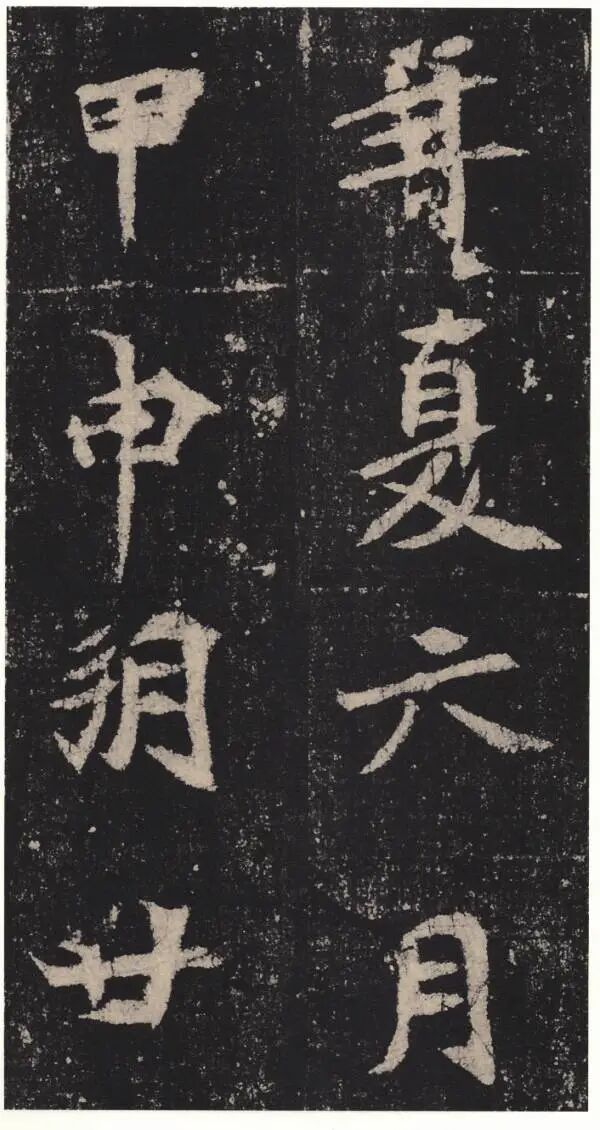 夏六月
甲申朔廿